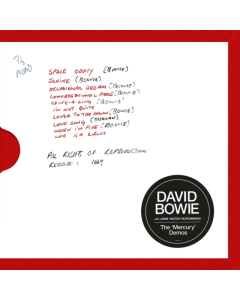 7½
MONO
SPACE ODDITY (BOWIE)
JANINE (BOWIE)
OCCASIONAL DREAM (BOWIE)
CONVERSATIONAL PIECE (BOWIE)
CHING-A-LING (BOWIE)
I'M NOT QUITE
LOVER TO THE DAWN (BOWIE)
LOVE SONG (DUNCAN)
WHEN I'M FIVE (BOWIE)
LIFE IS A CIRCUS
ALL RIGHTS OF REPRODUCTION
RESERVED 1969
DAVID
BOWIE
with JOHN 'HUTCH' HUTCHINSON
The 'Mercury'
Demos